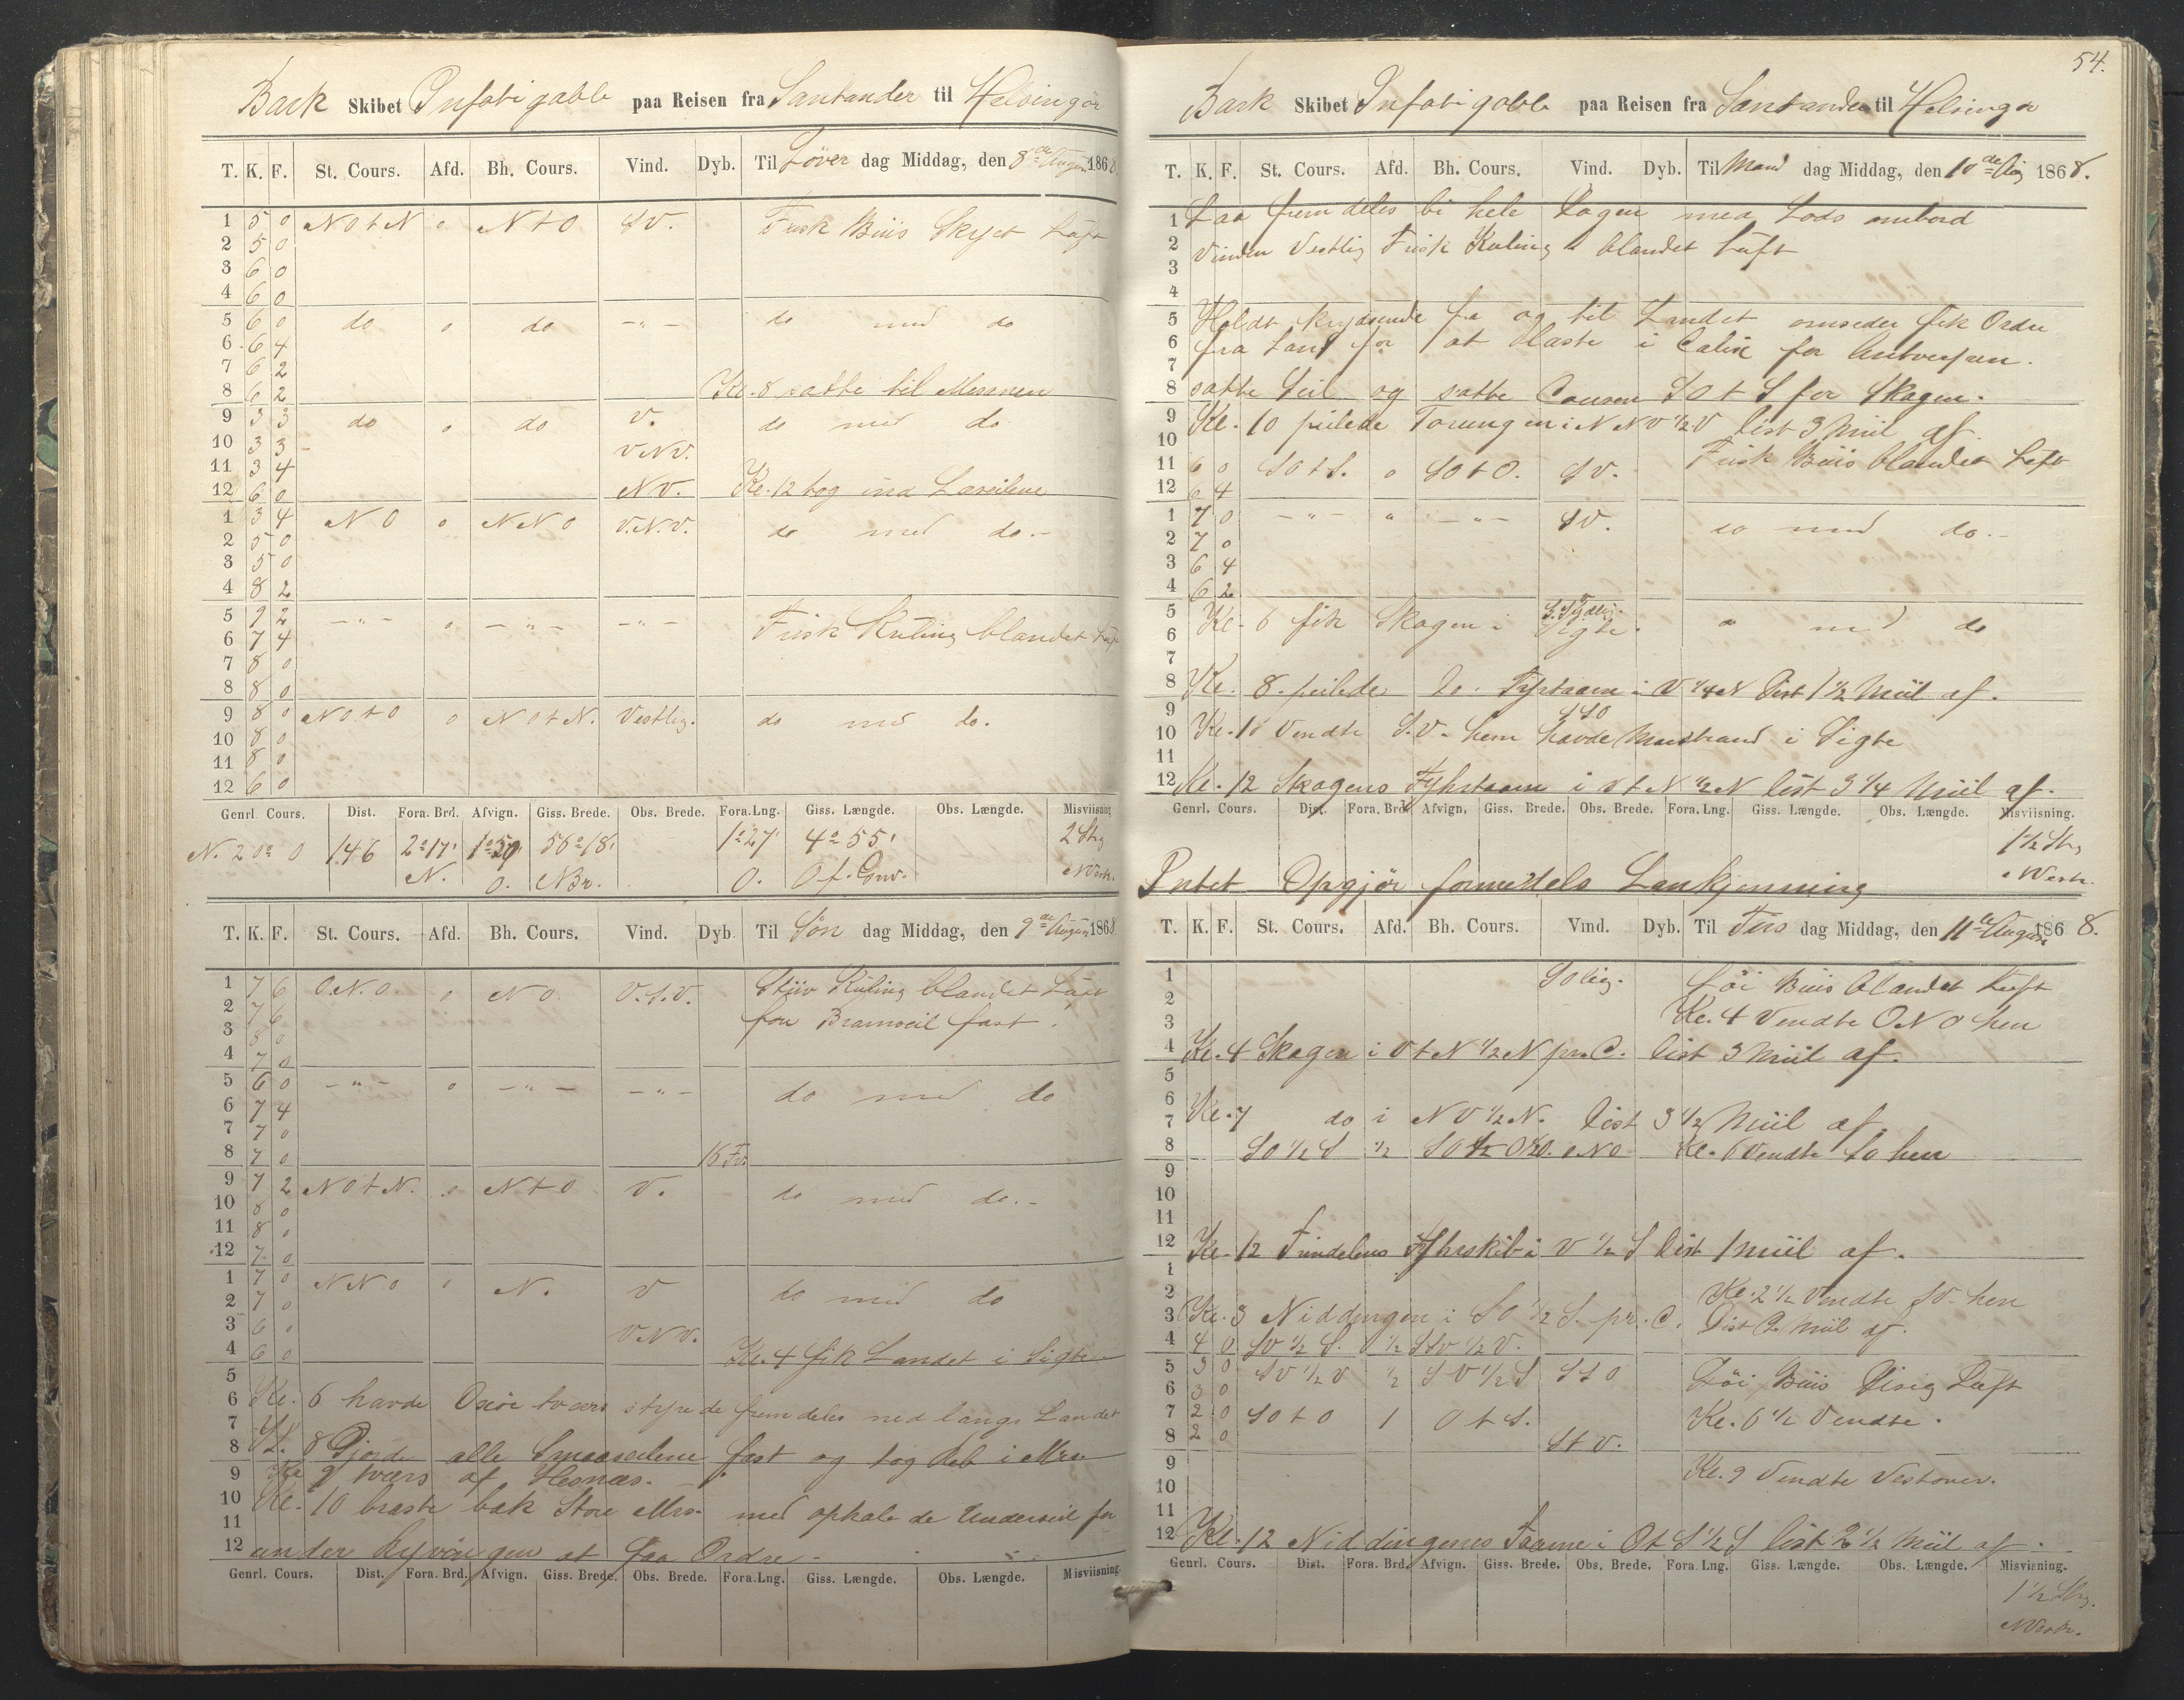 Bark Skibet Infatigable paa Reisen fra Santander til Helsingør
T. K. F. St. Cours. Afd. Bh. Cours. Vind. Dyb. Til Löver dag Middag, den 8de August 1868.
1 5 0 NOtN 0 NtO SV. Frisk Briis Skyet Luft
2 5 0
3 6 0
4 6 0
5 6 0 do 0 do -"- do med do
6 6 4
7 6 2
8 6 2 Kl. 8 satte til Mersseil
9 3 3 do 0 do V. do med do
10 3 3 VNV.
11 3 4
12 6 0 NV. Kl. 12 tog ind Læseilene
1 3 4 NO 0 NNO V.N.V. do med do.-
2 5 0
3 5 0
4 8 2
5 9 2 -"- 0 -"- -"- Frisk Kuling blandet Luft
6 7 4
7 8 0
8 8 0
9 8 0 NOtO 0 NOtN. Vestlig. do med do.
10 8 0
11 8 0
12 6 0
Genrl. Cours. Dist. Fora. Brd. Afvign. Giss. Brede. Obs. Brede. Fora. Lng. Giss. Længde. Obs. Længde. Misviisning
N. 20° O 146 2° 17' 1° 50' 56° 18' 1° 27' 4° 55' 2 Str
N. O. NBr. O. O f. Grw. NVestr.
T. K. F. St. Cours. Afd. Bh. Cours. Vind. Dyb. Til Søn dag Middag, den 9de August 1868
1 7 6 O.N.O. 0 NO. V.S.V. Stiiv Kuling blandet Luft
2 7 6 for Bramseil fast.
3 8 0
4 7 0
5 6 0 -"- 0 -"- -"- do med do
6 7 4
7 7 0
8 7 0 16 Fv.
9 7 2 NOtN. 0 NtO V. do med do.-
10 8 0
11 8 0
12 7 0
1 7 0 NNO 0 N. V do med do
2 7 0
3 6 0 VNV.
4 6 0 Kl. 4 fik Landet i Sigte
5
6 Kl. 6 havde Oxöe tværs styrede fremdeles ned langs Landet
7
8 Kl. 8 Gjorde alle Smaaseilene fast og tog Reb i Mrs.
9 Kl 9 tværs af Hesnæs.
10 Kl. 10 braste bak Store Mrs. med ophalede Underseil for
11
12 under Ryvingen at faa Ordre -
Genrl. Cours. Dist. Fora. Brd. Afvign. Giss. Brede. Obs. Brede. Fora. Lng. Giss. Længde. Obs. Længde. Misviisning
54.
Bark Skibet Infatigable paa Reisen fra Santander til Helsingør
T. K. F. St. Cours. Afd. Bh. Cours. Vind. Dyb. Til Man dag Middag, den 10de Aug 1868.
1 Laa fremdeles bi hele Dagen med Lods ombord
2 Vinden Vestlig Frisk Kuling blandet Luft
3
4
5 Holdt krydsende fra og til Landet omsider fik Ordre
6 fra Land for at laste i Calix for Antverpen.
7
8 satte Seil og satte Coursen SOtS for Skagen.
9 Kl. 10 peilede Torungen i NNV 1/2 V Dist 3 Miil af.
10
11 6 0 SOtS. 0 SOtO. SV. Frisk Briis blandet Luft
12 6 4
1 7 0 -"- " -"- SV. do med do.-
2 7 0
3 6 4
4 6 2
5 Kl. 6 fik Skagen i Sigte. S. Sydlig. " med do
6
7
8 Kl. 8. peilede do. Fyrtaarn i V 1/4 N Dist 1 1/2 Miil af.
9 SSO
10 Kl. 10 Vendte S.V. hen havde Marstrand i Sigte
11
12 Kl. 12 Skagens Fyhrtaarn i VtN 1/2 N Dist 3 1/4 Miil af.
Genrl. Cours. Dist. Fora. Brd. Afvign. Giss. Brede. Obs. Brede. Fora. Lng. Giss. Længde. Obs. Længde. Misviisning.
1 1/2 Str
NVestr.
Intet Opgjör formedels Lankjenning
T. K. F. St. Cours. Afd. Bh. Cours. Vind. Dyb. Til Tirs dag Middag, den 11te August 1868.
1 SOlig. Löi Briis blandet Luft
2 Kl. 4 Vendte ONO hen
3
4 Kl. 4 Skagen i VtN 1/2 N pr. C. Dist 3 Miil af.
5
6
7 Kl. 7 do i NV 1/2 N. Dist 3 1/2 Miil af
8 SO 1/2 S 1/2 SO 1/2 O ONO Kl. 6 Vendte SO hen
9
10
11
12 Kl. 12 Trindelens Fyhrskib i V 1/2 S Dist 1 miil af.
1
2 Kl. 2 1/2 Vendte SV hen
3 Kl. 3 Niddingen i SO 1/2 S. pr. C. Dist 2 Miil af.
4 4 0 SV 1/2 S. 1/2 SSV 1/2 V.
5 3 0 SV 1/2 V 1/2 SV 1/2 S SSO Löi Briis Disig Luft
6 3 0
7 2 0 SOtO 1 OtS. Kl. 6 1/2 Vendte.
8 2 0 StV.
9 Kl. 9 Vendte Vestover.
10
11
12 Kl. 12 Niddingenes Taarne i OtS 1/2 S Dist 2 1/2 Miil af.
Genrl. Cours. Dist. Fora. Brd. Afvign. Giss. Brede. Obs. Brede. Fora. Lng. Giss. Længde. Obs. Længde. Misvisning.
1 1/2 Str.
NVestr.